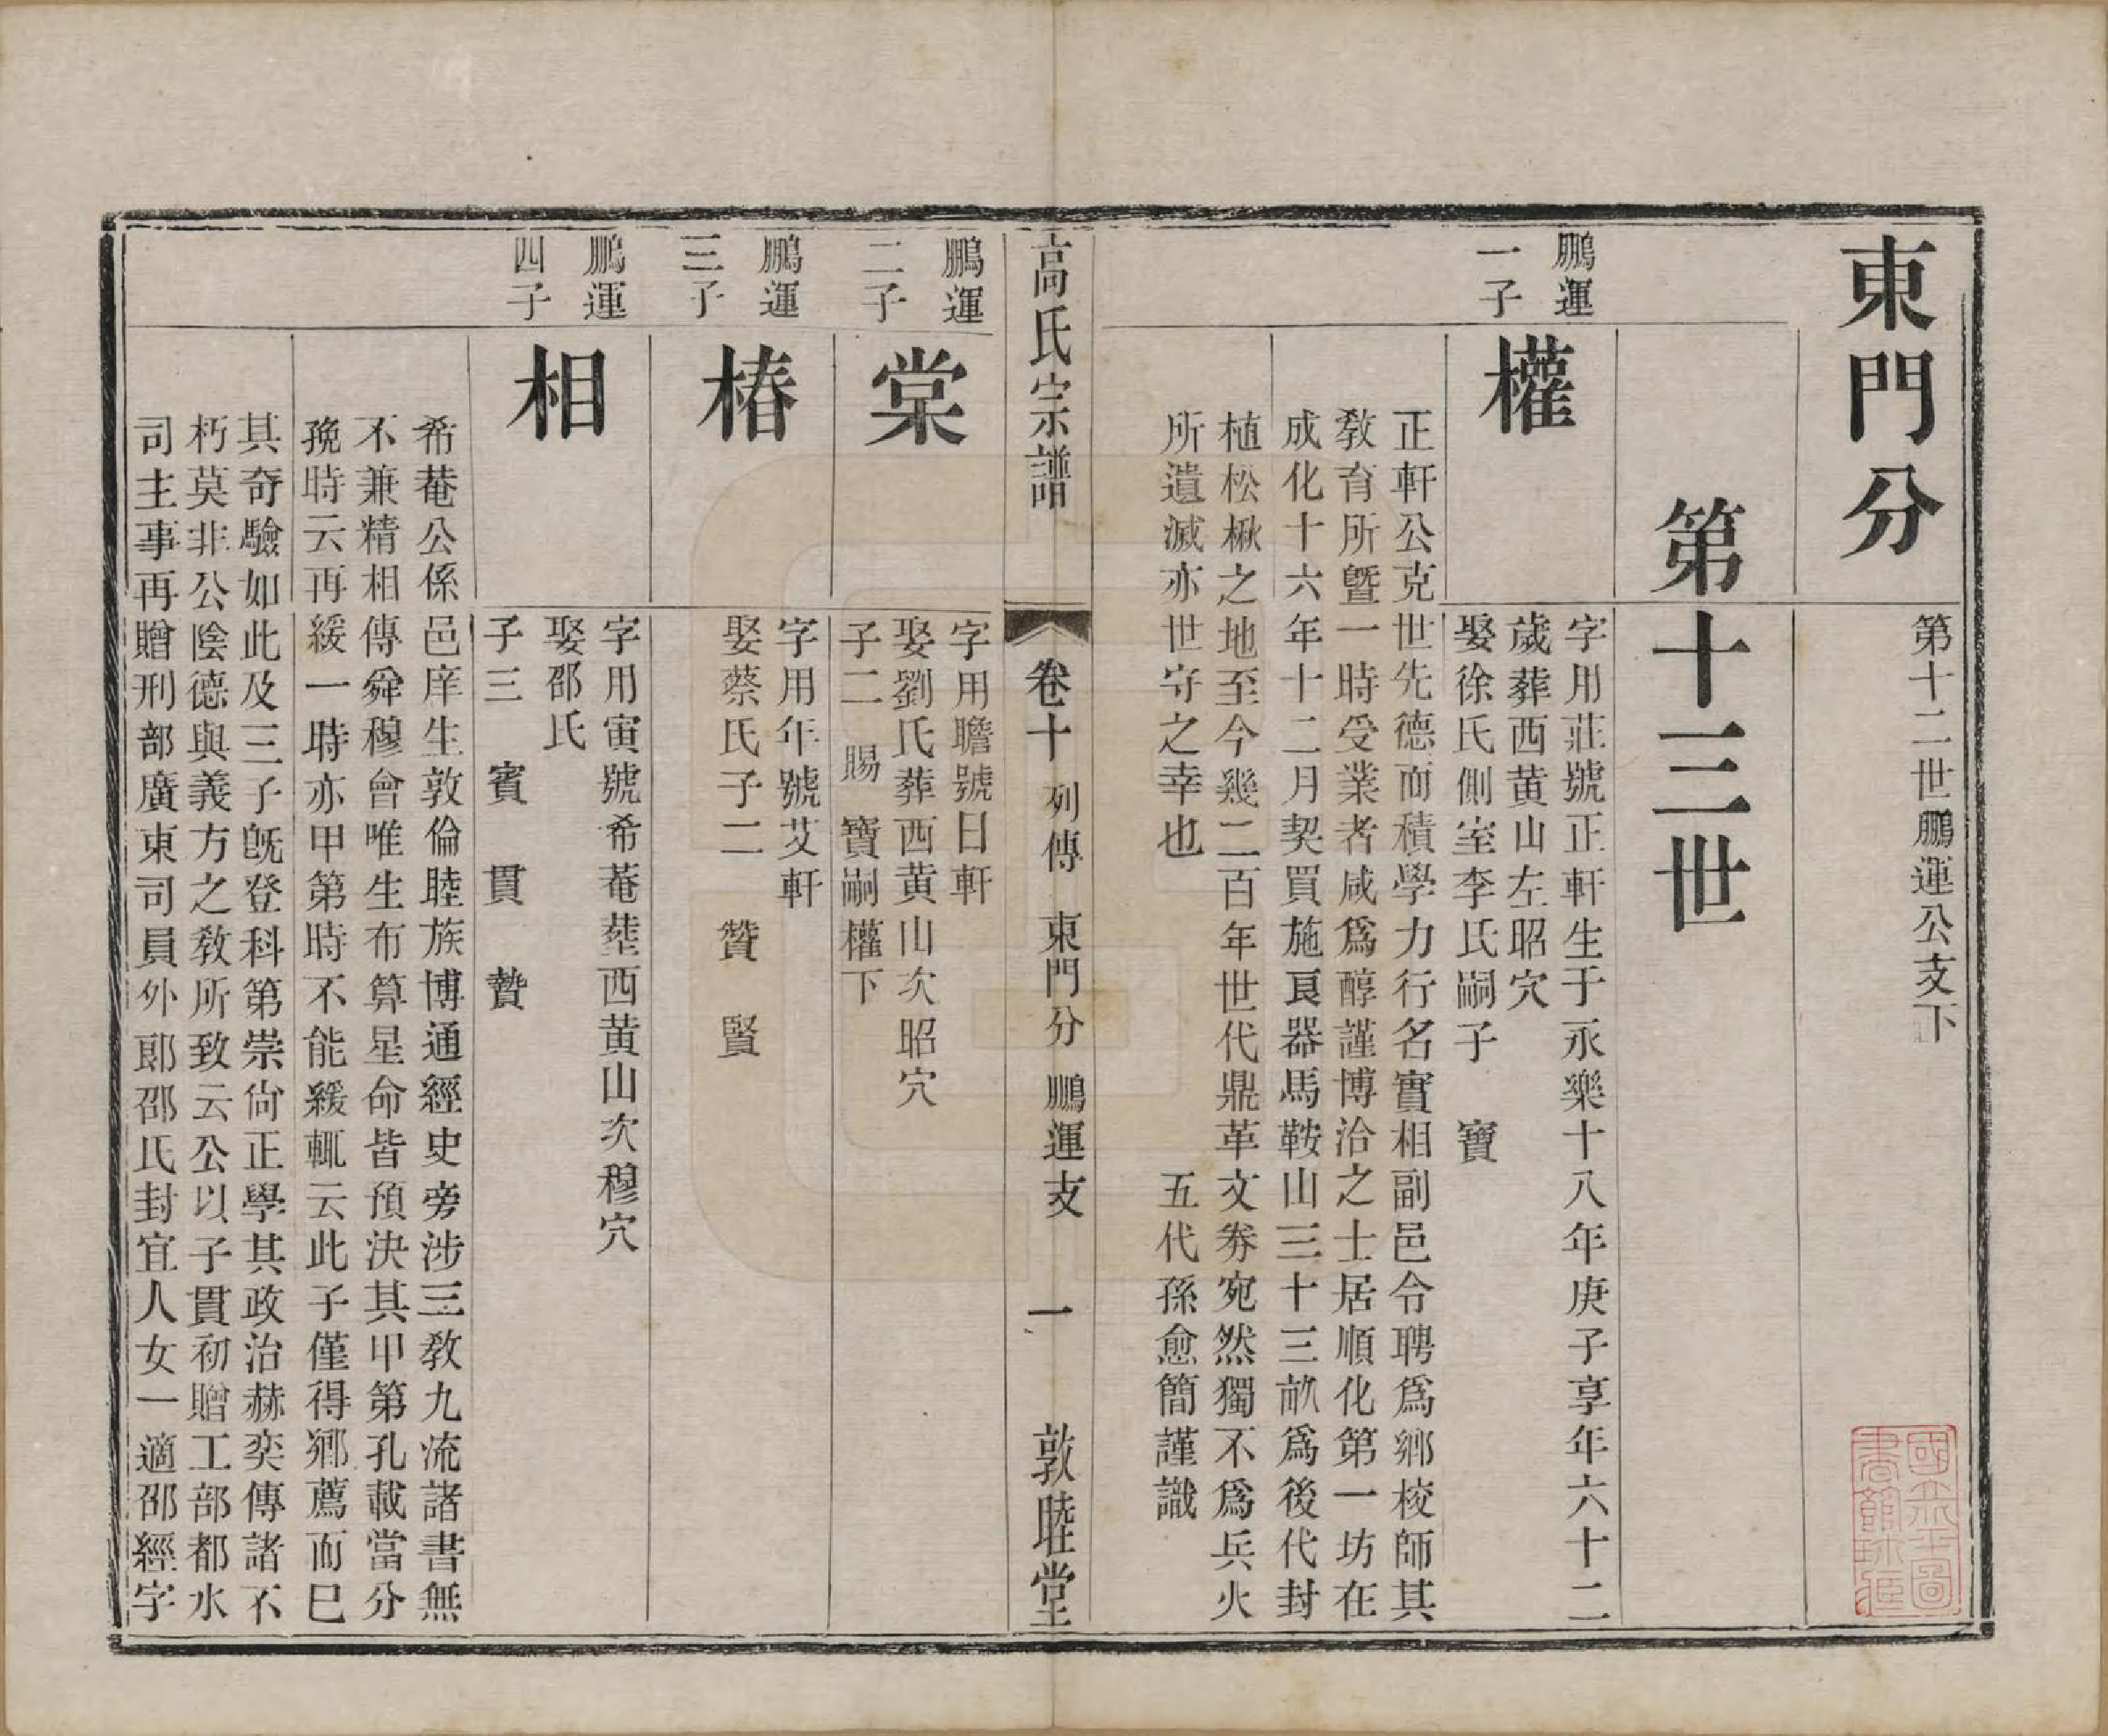 東門分
第十二世鵬運公支下
第十三世
鵬運
一子
權
字用莊號正軒生于永樂十八年庚子享年六十二
歲葬西黄山左昭穴
娶徐氏側室李氏嗣子　寶
正軒公克世先德而積學力行名實相副邑令聘爲鄉校師其
敎育所曁一時受業者咸爲醇謹博洽之士居順化第一坊在
成化十六年十二月契買施良器馬鞍山三十三畝爲後代封
植松楸之地至今幾二百年世代鼎革文劵宛然獨不爲兵火
所遺滅亦世守之幸也　五代孫愈簡謹識
高氏宗譜
卷十　列傳　東門分　鵬運支　一　敦睦堂
鵬運
二子
棠
字用瞻號日軒
娶劉氏葬西黄山次昭穴
子二　賜　寶嗣權下
鵬運
三子
椿
字用年號艾軒
娶蔡氏子二　贊　賢
鵬運
四子
相
字用寅號希菴塟西黄山次穆穴
娶邵氏
子三　賓　貫　贄
希菴公係邑庠生敦倫睦族博通經史旁涉三敎九流諸書無
不兼精相傳舜穆會唯生布算星命皆預決其甲第孔載當分
㝃時云再緩一時亦甲第時不能緩輒云此子僅得鄉薦而巳
其奇驗如此及三子旣登科第崇尙正學其政治赫奕傳諸不
朽莫非公陰德與義方之敎所致云公以子貫初贈工部都水
司主事再贈刑部廣東司員外郎邵氏封宜人女一適邵經字
國立北平圖
書館珍藏